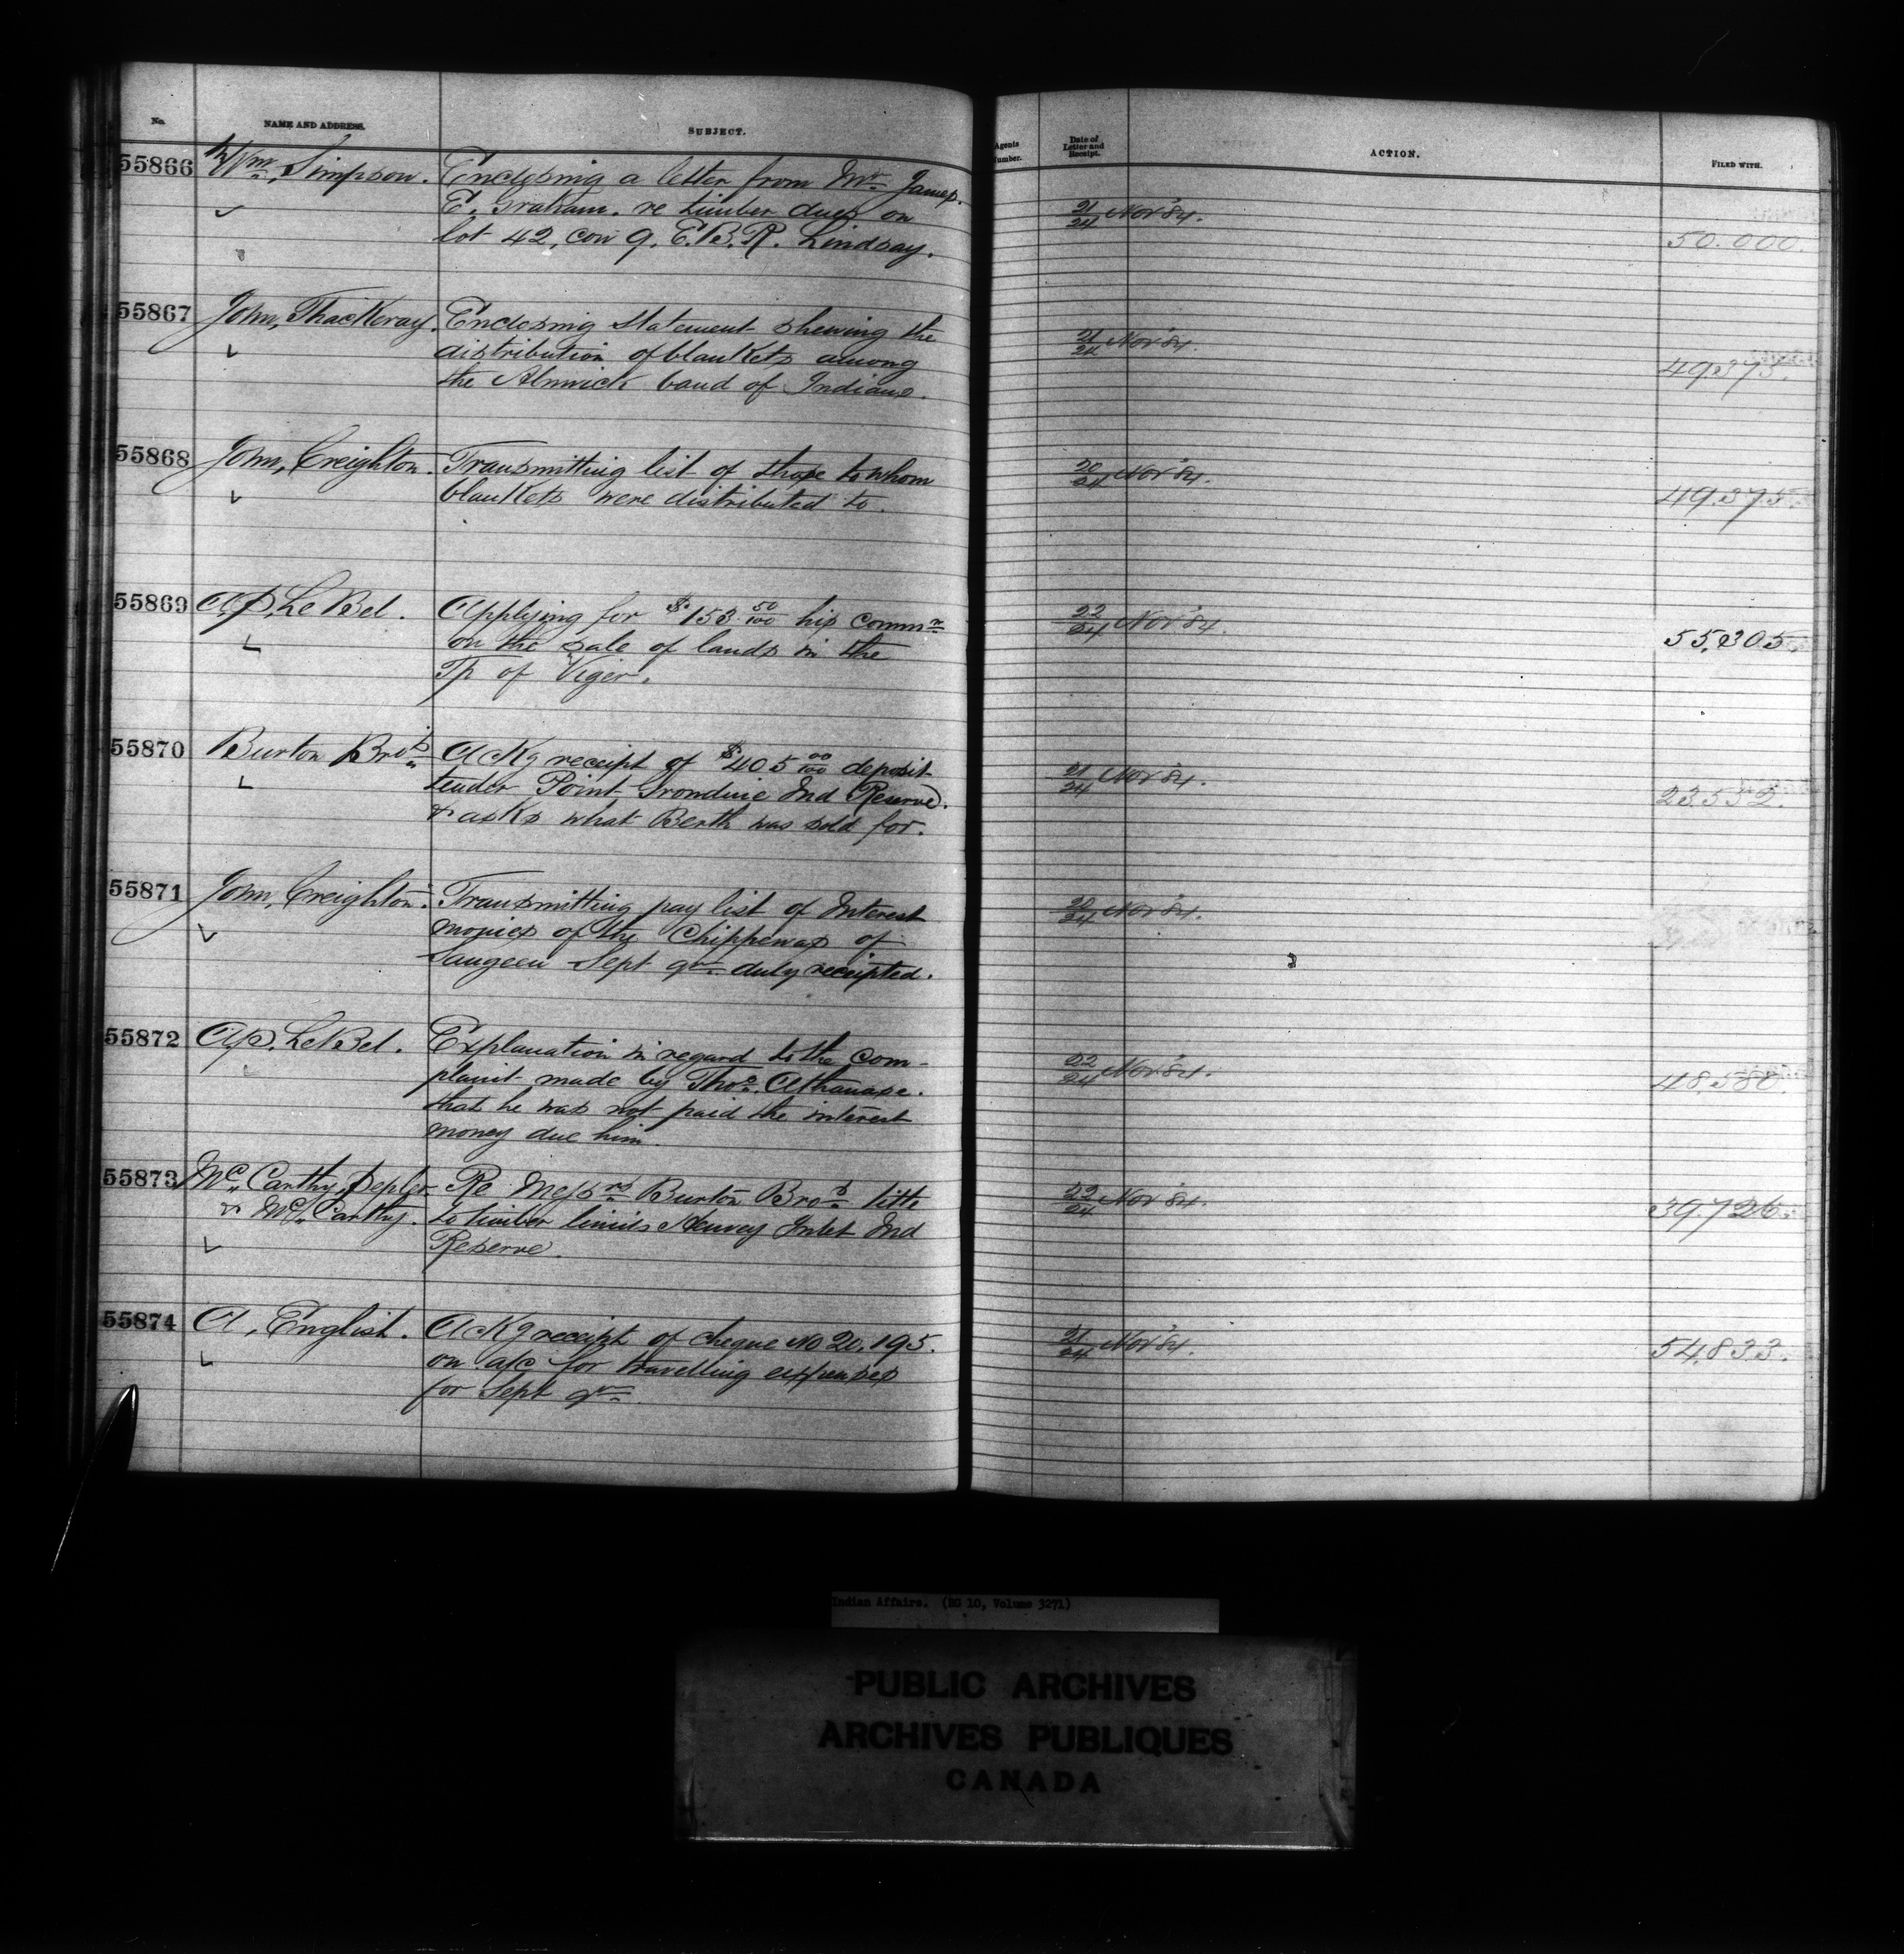 No. NAME AND ADDRESS. SUBJECT. Agents Number. Date of Letter and Receipt. ACTION. FILED WITH.
55866 Wm. Simpson. Enclosing a letter from Mr. James.
E. Graham. re timber dues on 21/24 Nov '84.
lot 42, con 9, E.B.R. Lindsay. 50.000.
55867 John, Thackeray. Enclosing Statement shewing the
distribution of blankets among 21/24 Nov '84.
the Alnwick band of Indians. 49375.
55868 John, Creighton. Transmitting list of those to whom 20/24 Nov '84.
blankets were distributed to. 49.375.
55869 A.P. LeBel. Applying for $153 50/100 his commn 22/24 Nov '84.
on the sale of lands in the 55,305.
Tp of Viger.
55870 Burton Bros. Ackg receipt of $405 00/100 deposit
tender Point Grondine Ind Reserve. 21/24 Nov '84.
& asks what Berth was sold for. 23552.
55871 John, Creighton. Transmitting pay list of Interest 20/24 Nov '84.
monies of the Chippewas of
Saugeen Sept qr duly receipted.
55872 A.P. LeBel. Explanation in regard to the com-
plaint made by Thos. Athanase. 22/24 Nov '84.
that he was not paid the interest 48580.
money due him.
55873 McCarthy, Pepler Re Messrs Burton Bros. title 22/24 Nov '84.
& McCarthy. to timber limits Henvey Inlet Ind 39726.
Reserve.
55874 A, English. Ackg receipt of cheque No 20,195. 21/24 Nov '84.
on a/c for travelling expenses 54,833.
for Sept qr
Indian Affairs. (RG 10, Volume 3271)
PUBLIC ARCHIVES
ARCHIVES PUBLIQUES
CANADA